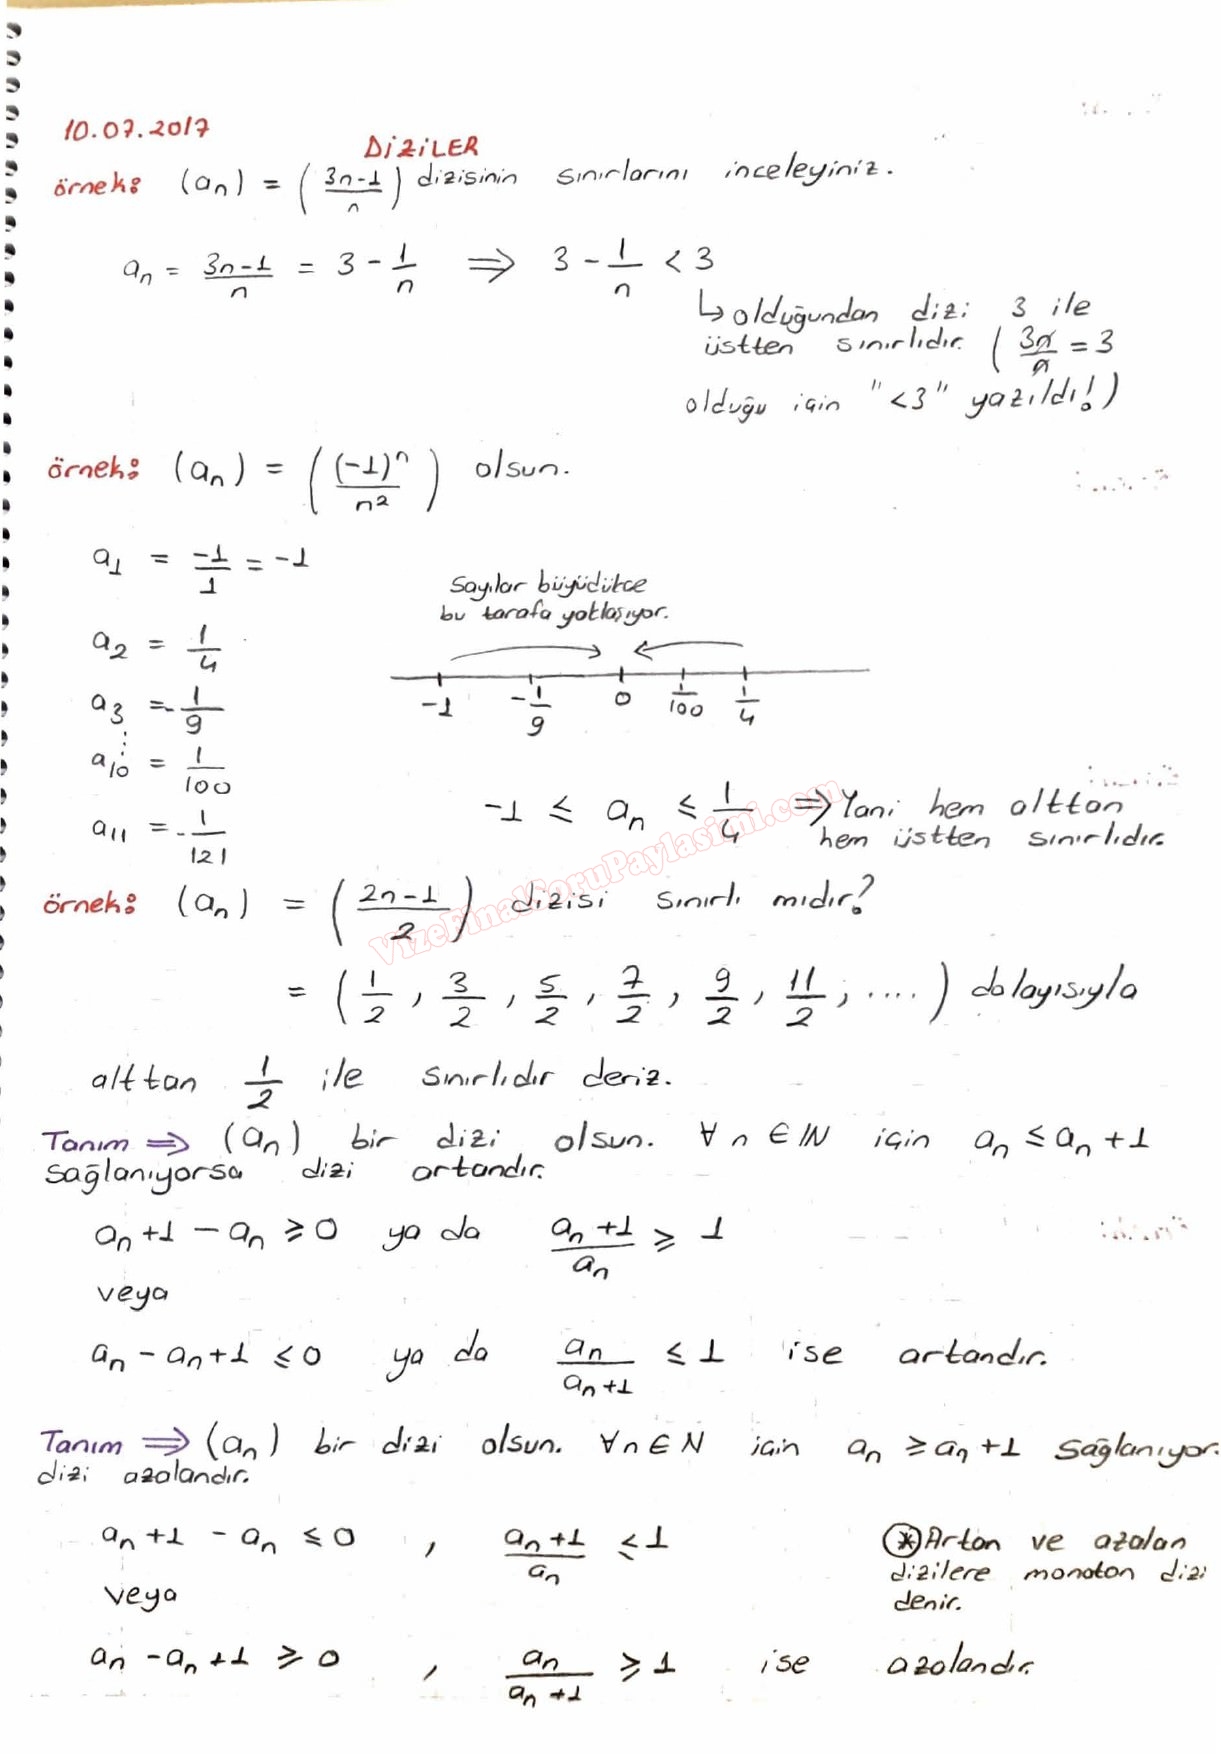 10.07.2017
DİZİLER
örnek: (aₙ) = ((3n-1)/n) dizisinin sınırlarını inceleyiniz.
aₙ = (3n-1)/n = 3 - 1/n ⇒ 3 - 1/n < 3
↳ olduğundan dizi 3 ile
üstten sınırlıdır. (3n/n = 3
olduğu için "<3" yazıldı!)
örnek: (aₙ) = ((-1)ⁿ/n²) olsun.
a₁ = -1/1 = -1
Sayılar büyüdükçe
bu tarafa yaklaşıyor.
a₂ = 1/4
a₃ = -1/9
-1 -1/9 0 1/100 1/4
⋮
a₁₀ = 1/100
a₁₁ = -1/121
-1 ≤ aₙ ≤ 1/4 ⇒ Yani hem alttan
hem üstten sınırlıdır.
VizeFinalSoruPaylasimi.com
örnek: (aₙ) = ((2n-1)/2) dizisi sınırlı mıdır?
= (1/2, 3/2, 5/2, 7/2, 9/2, 11/2, ....) dolayısıyla
alttan 1/2 ile sınırlıdır deriz.
Tanım ⇒ (aₙ) bir dizi olsun. ∀n ∈ IN için aₙ ≤ aₙ+1
sağlanıyorsa dizi artandır.
aₙ+1 - aₙ ≥ 0 ya da (aₙ+1)/aₙ ≥ 1
veya
aₙ - aₙ+1 ≤ 0 ya da aₙ/(aₙ+1) ≤ 1 ise artandır.
Tanım ⇒ (aₙ) bir dizi olsun. ∀n ∈ N için aₙ ≥ aₙ+1 sağlanıyor.
dizi azalandır.
aₙ+1 - aₙ ≤ 0 , (aₙ+1)/aₙ ≤ 1
veya
aₙ - aₙ+1 ≥ 0 , aₙ/(aₙ+1) ≥ 1 ise azalandır.
⊛ Artan ve azalan
dizilere monoton dizi
denir.